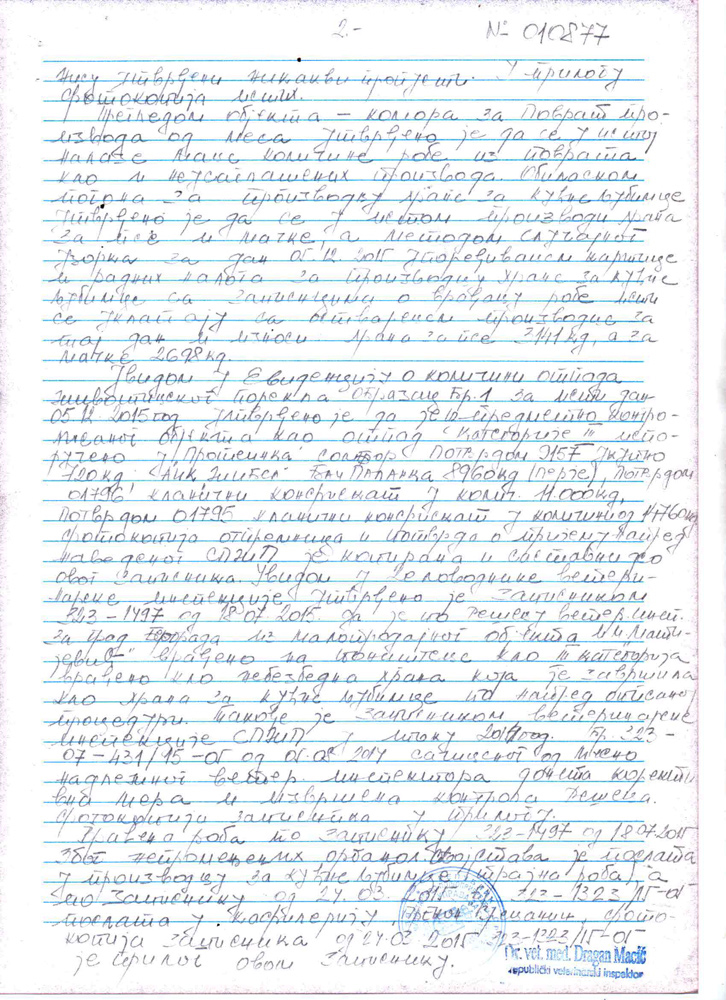 2.-
№ 010877
нису утврђени никакви пропусти. У прилогу
фотокопија истих.
Прегледом објекта – комора за поврат про-
извода од меса утврђено је да се у истој
налазе мање количине робе из поврата
као и неусаглашених производа. Обиласком
погона за производњу хране за кућне љубимце
утврђено је да се у истом производи храна
за псе и мачке, а методом случајног
узорка за дан 05.12.2015 упоређивањем
и радних налога за производњу хране за кућне
љубимце са записницима о враћању робе исти
се уклапају са оствареном производњом за
тај дан и износи храна за псе 3141 kg, а за
мачке 2698 kg.
Увидом у Евиденцију о количини отпада
животињског порекла образац бр. 1 за исти дан
05.12.2015 год утврђено је да је из предметно контро-
лисаног објекта као отпад категорије III испо-
ручено у "Протеинка" Сомбор Потврдом
720 kg, Паланка 8960 kg (перје), Потврдом
01796 кланични конфискат у колич. 11.000 kg,
Потврдом 01795 кланични конфискат у количини од 14760 kg
фотокопија отпремница и потврда о пријему напред
наведеног СПЖП је копирана и саставни део
овог записника. Увидом у Деловодник ветери-
нарске инспекције утврђено је записником
323-1497 од 18.07.2015. да је по Решењу ветер. инсп.
за из малопродајног објекта
враћено на поништење као III категорија
враћено као небезбедна храна која је завршила
као храна за кућне љубимце по напред описаној
процедури. Такође је записником ветеринарске
инспекције СПЖП у 323-
07- од сачињеног од месно
надлежног ветер. инспектора донета коректи-
вна мера и извршена контрола Решења.
Фотокопија записника у прилогу.
Враћена роба по записнику 323-1497 од 18.07.2015
због непромењених орган. својстава је послата
у производњу за кућне љубимце (трајна роба), а
по записнику од 27.03.2015 323-1323/15-05
послата у кафилерију, фото-
копија записника од 27.03.2015 323-1323/15-05
је прилог овом записнику.
Dr. vet. med. Dragan Macić
republički veterinarski inspektor